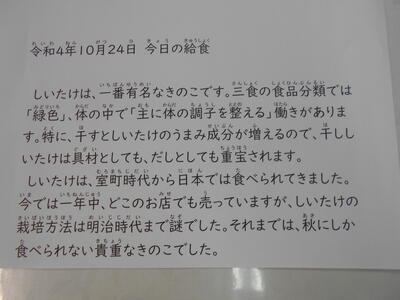 令和4年10月24日 今日の給食
しいたけは、一番有名なきのこです。三食の食品分類では
「緑色」、体の中で「主に体の調子を整える」働きがありま
す。特に、干すとしいたけのうまみ成分が増えるので、干しし
いたけは具材としても、だしとしても重宝されます。
しいたけは、室町時代から日本では食べられてきました。
今では一年中、どこのお店でも売っていますが、しいたけの
栽培方法は明治時代まで謎でした。それまでは、秋にしか
食べられない貴重なきのこでした。